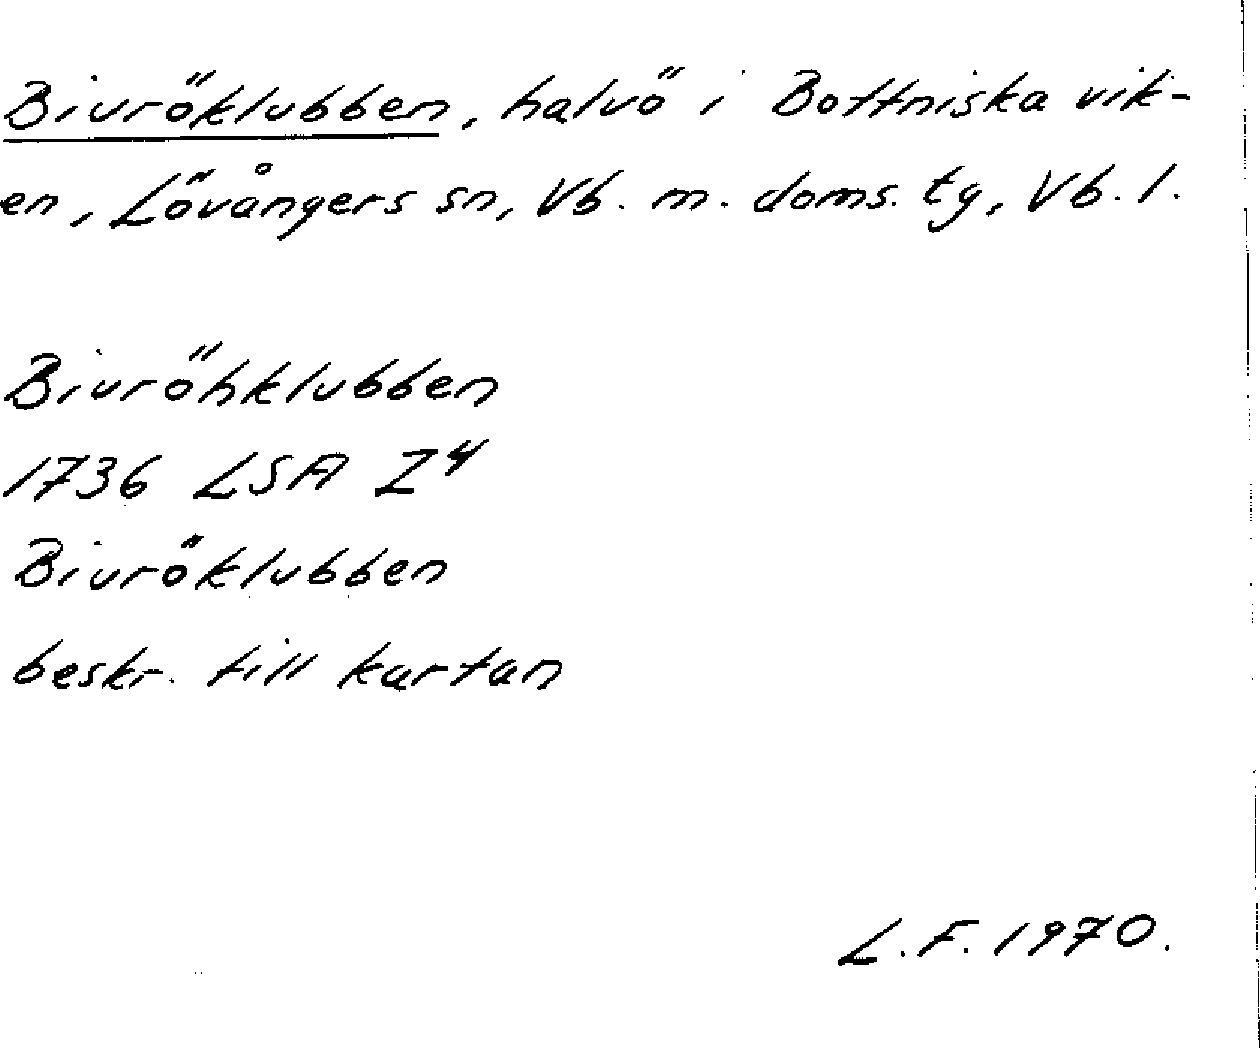 Biuröklubben, halvö i Bottniska vik-
en, Lövångers sn, Vb. m. doms. tg, Vb. l.
Biuröhklubben
1736 LSA Z4
Biuröklubben
beskr. till kartan
L.F. 1970.